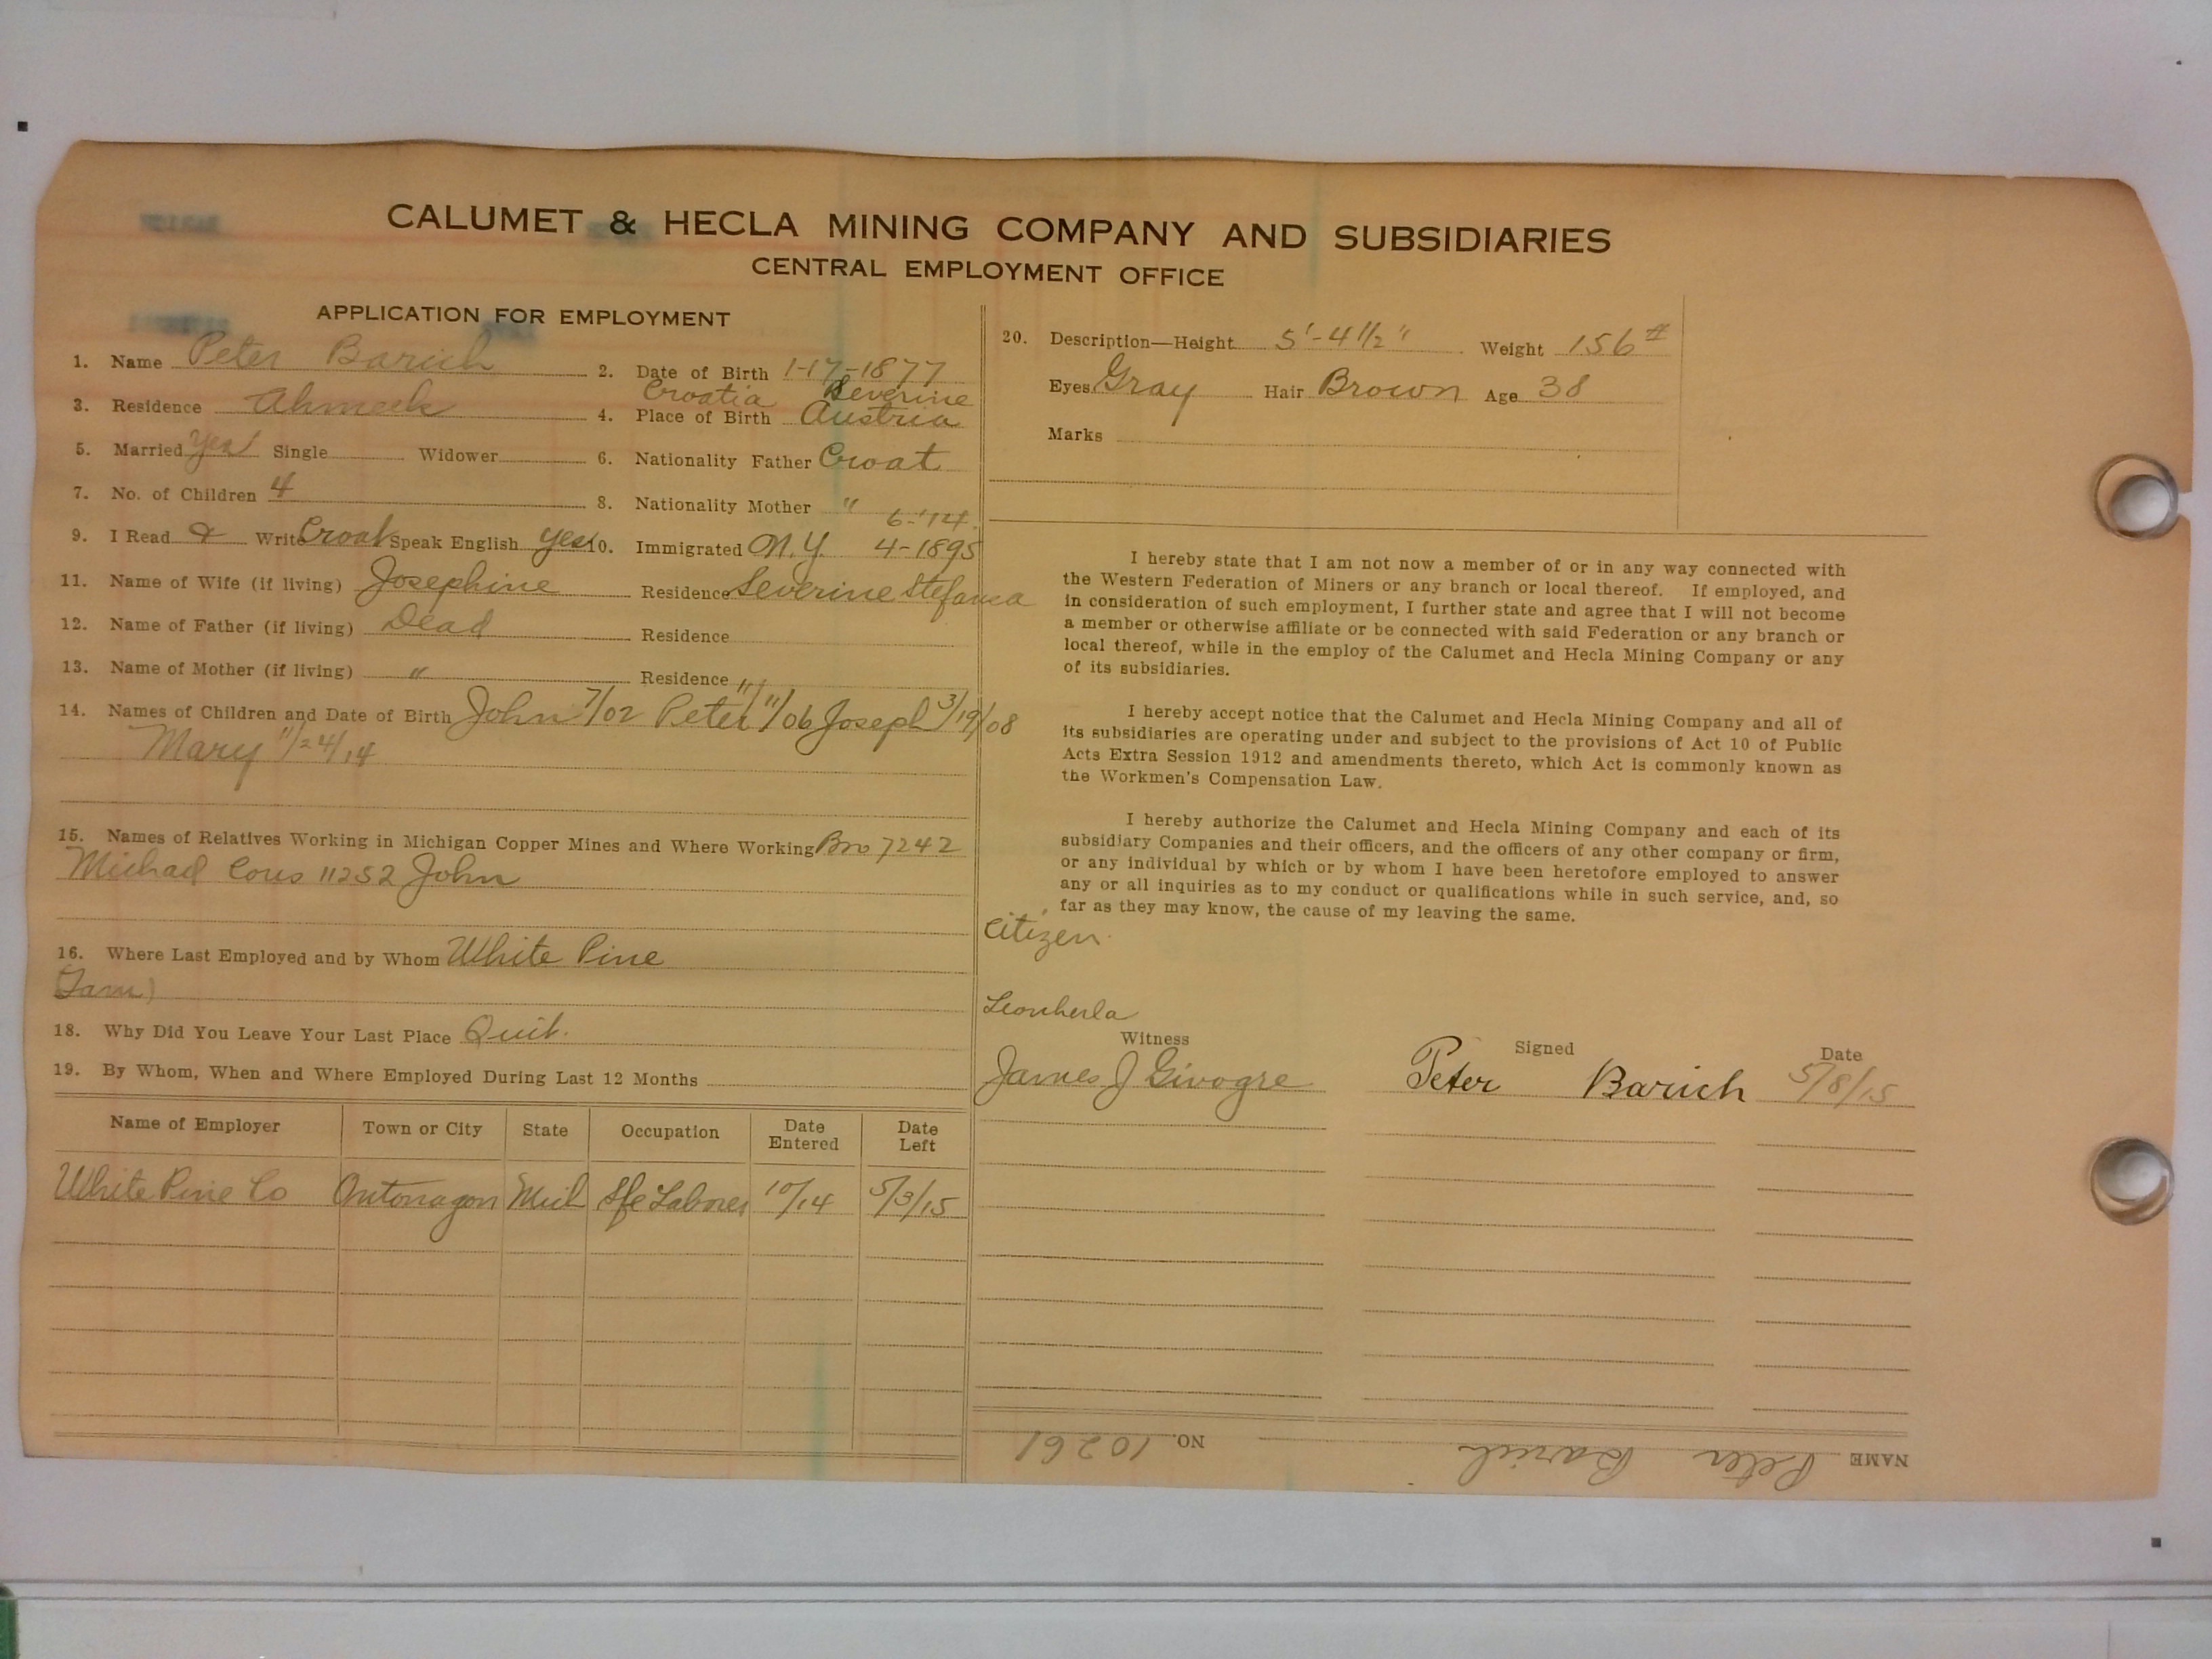 CALUMET & HECLA MINING COMPANY AND SUBSIDIARIES
CENTRAL EMPLOYMENT OFFICE
APPLICATION FOR EMPLOYMENT
1. Name Peter Barich 2. Date of Birth 1-17-1877
Croatia Severine
3. Residence Ahmeek 4. Place of Birth Austria
5. Married yes Single Widower 6. Nationality Father Croat
7. No. of Children 4 8. Nationality Mother "
6-'14
9. I Read & Write Croat Speak English yes 10. Immigrated N.Y. 4-1895
11. Name of Wife (if living) Josephine Residence Severine Stefanca
12. Name of Father (if living) Dead Residence
13. Name of Mother (if living) " Residence "
14. Names of Children and Date of Birth John 7/02 Peter 11/06 Joseph 3/19/08
Mary 11/24/14
15. Names of Relatives Working in Michigan Copper Mines and Where Working Bro 7242
Michael Cous 11252 John
16. Where Last Employed and by Whom White Pine
18. Why Did You Leave Your Last Place Quit.
19. By Whom, When and Where Employed During Last 12 Months
Name of Employer Town or City State Occupation Date Entered Date Left
White Pine Co Ontonagon Mich Sfe Laborer 10/14 5/3/15
20. Description—Height 5'-4 1/2" Weight 156 #
Eyes Gray Hair Brown Age 38
Marks
I hereby state that I am not now a member of or in any way connected with
the Western Federation of Miners or any branch or local thereof. If employed, and
in consideration of such employment, I further state and agree that I will not become
a member or otherwise affiliate or be connected with said Federation or any branch or
local thereof, while in the employ of the Calumet and Hecla Mining Company or any
of its subsidiaries.
I hereby accept notice that the Calumet and Hecla Mining Company and all of
its subsidiaries are operating under and subject to the provisions of Act 10 of Public
Acts Extra Session 1912 and amendments thereto, which Act is commonly known as
the Workmen's Compensation Law.
I hereby authorize the Calumet and Hecla Mining Company and each of its
subsidiary Companies and their officers, and the officers of any other company or firm,
or any individual by which or by whom I have been heretofore employed to answer
any or all inquiries as to my conduct or qualifications while in such service, and, so
far as they may know, the cause of my leaving the same.
Citizen.
Witness Signed Date
James J Givogre Peter Barich 5/8/15
NAME Peter Barich NO. 10261